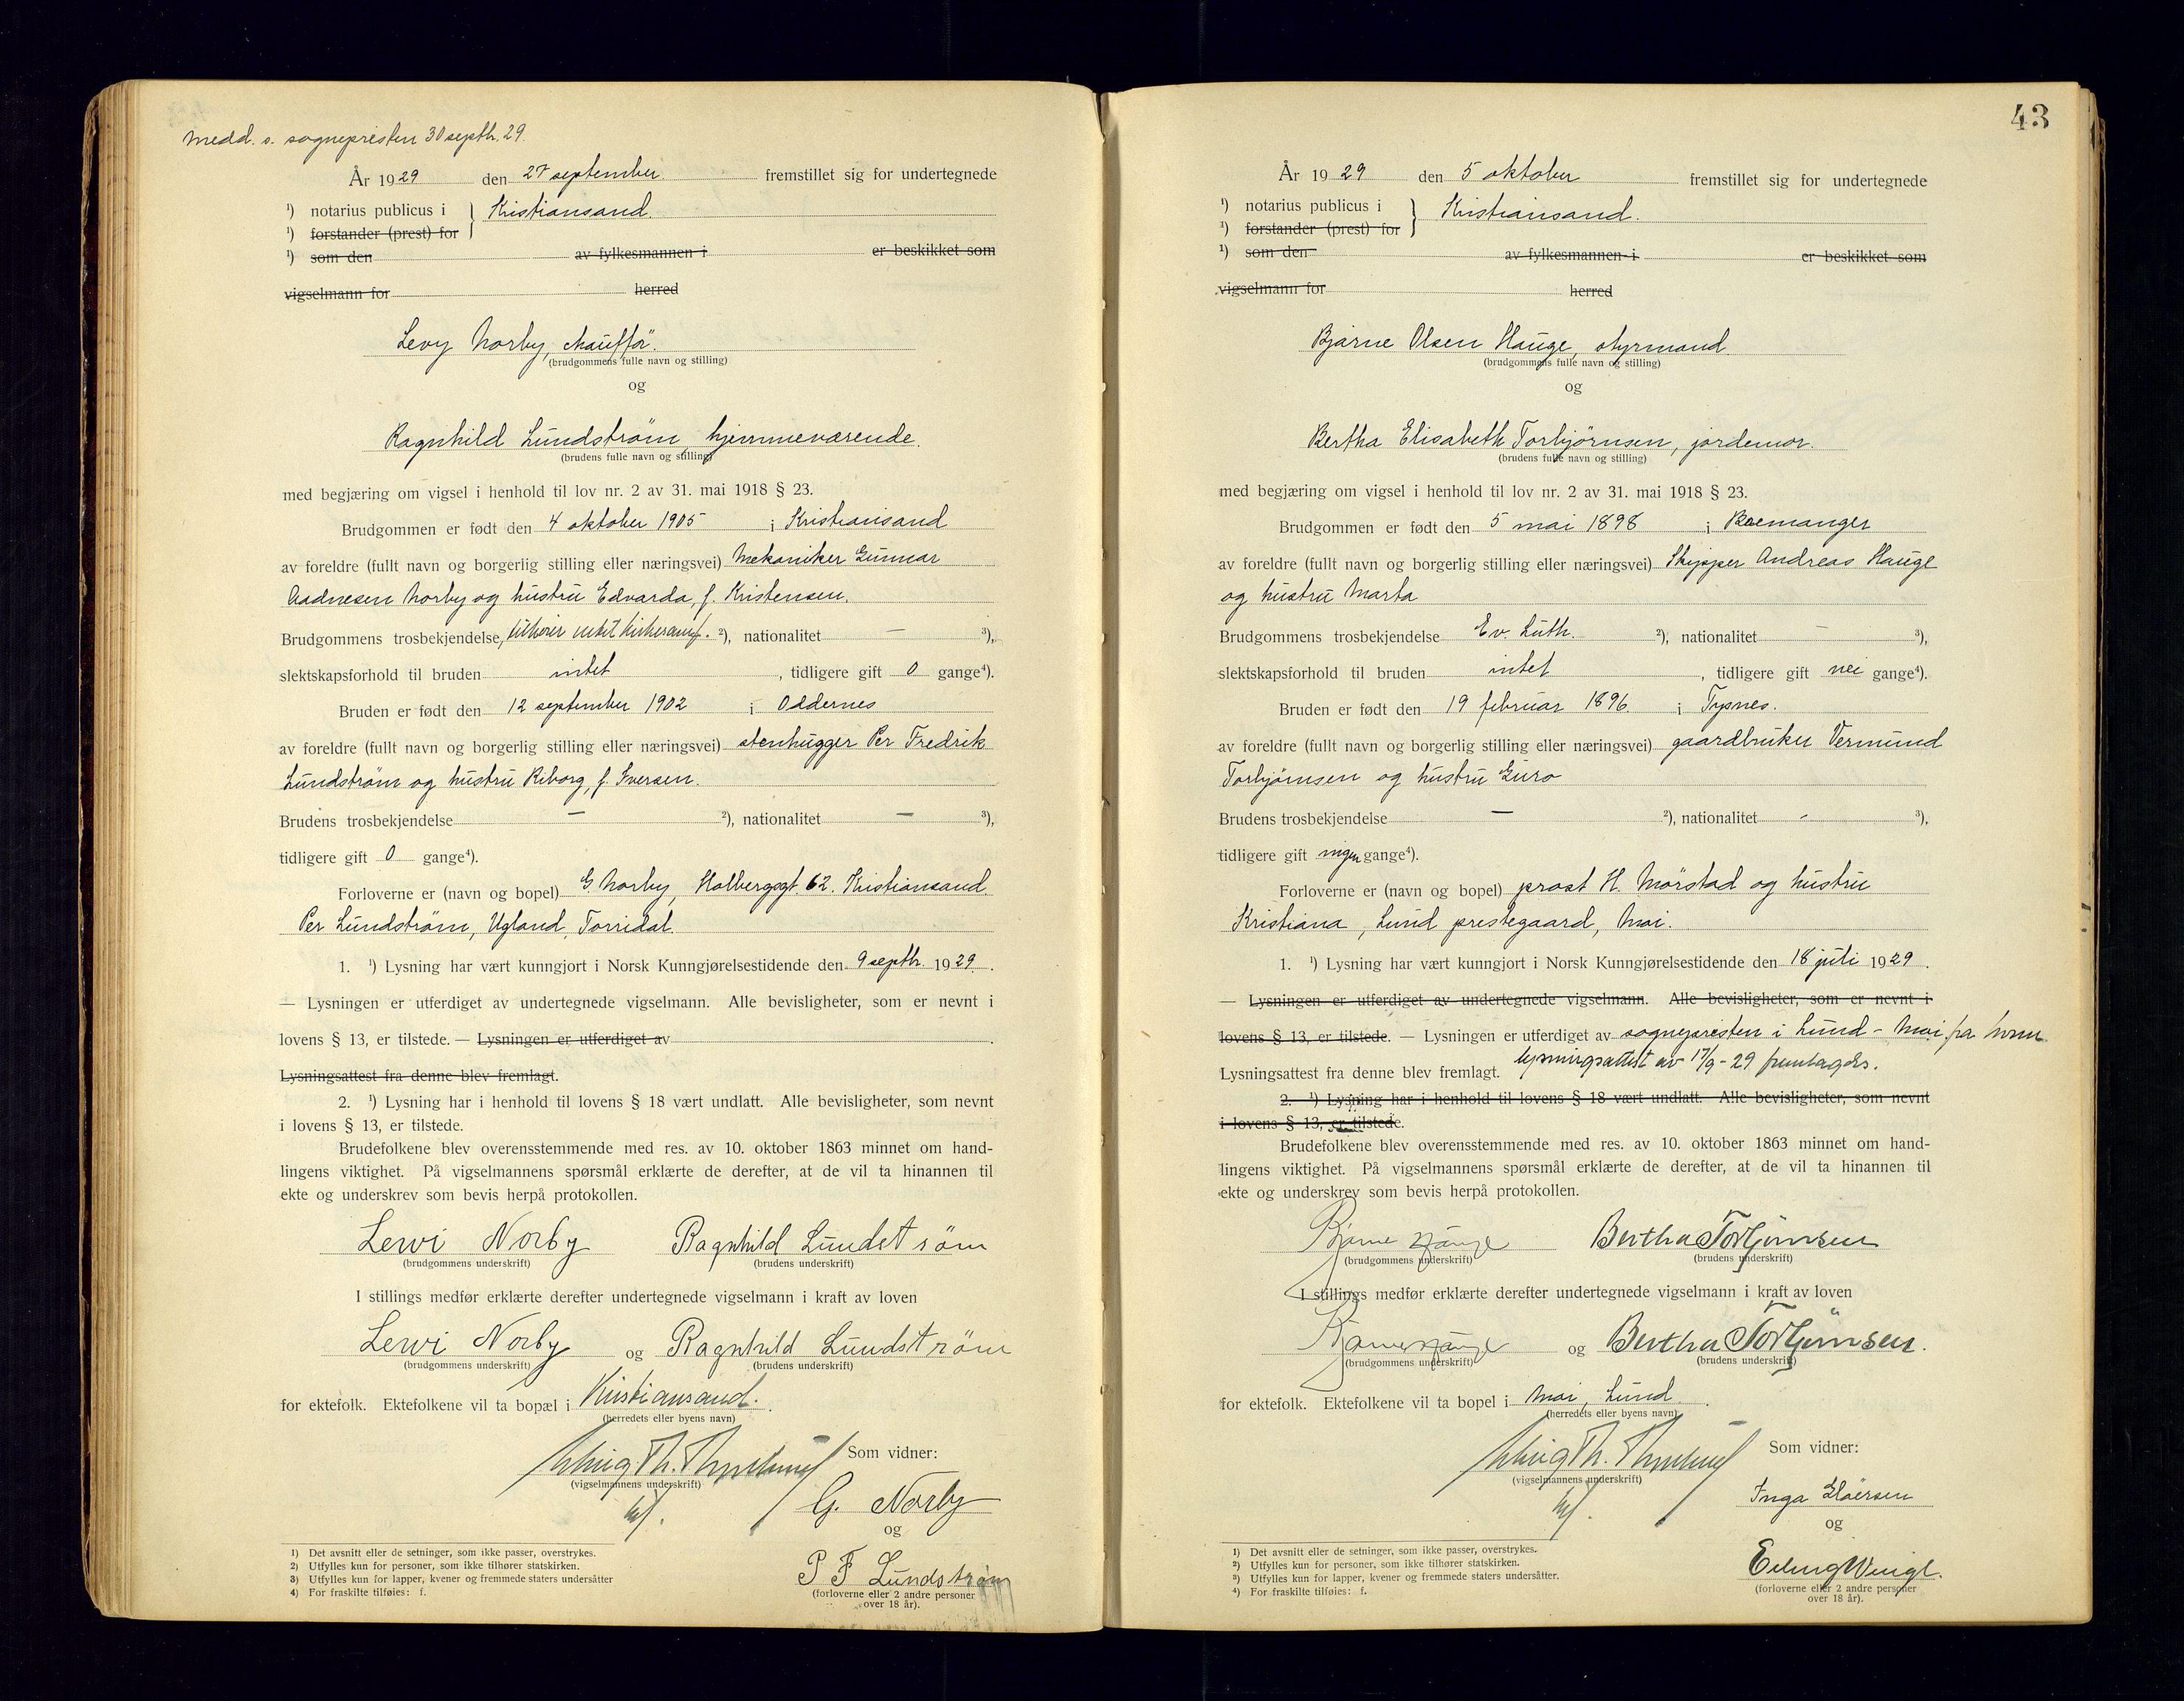 medd. s. sognepresten 30 septbr. 29.
År 1929 den 27 september fremstillet sig for undertegnede
¹) notarius publicus i } Kristiansand.
¹) forstander (prest) for
¹) som den av fylkesmannen i er beskikket som
vigselmann for herred
Levy Norby, chauffør.
(brudgommens fulle navn og stilling)
og
Ragnhild Lundstrøm, hjemmeværende.
(brudens fulle navn og stilling)
med begjæring om vigsel i henhold til lov nr. 2 av 31. mai 1918 § 23.
Brudgommen er født den 4 oktober 1905 i Kristiansand
av foreldre (fullt navn og borgerlig stilling eller næringsvei) Mekaniker Gunnar
Aadnesen Norby og hustru Edvarda, f. Kristensen.
Brudgommens trosbekjendelse, tilhører intet kirkesamf. ²), nationalitet — ³),
slektskapsforhold til bruden intet, tidligere gift 0 gange⁴).
Bruden er født den 12 september 1902 i Oddernes
av foreldre (fullt navn og borgerlig stilling eller næringsvei) stenhugger Per Fredrik
Lundstrøm og hustru Riborg, f. Iversen.
Brudens trosbekjendelse — ²), nationalitet — ³),
tidligere gift 0 gange⁴).
Forloverne er (navn og bopel) G. Norby, Holbergsgt. 62. Kristiansand.
Per Lundstrøm, Ugland, Torridal.
1. ¹) Lysning har vært kunngjort i Norsk Kunngjørelsestidende den 9 septbr. 1929.
— Lysningen er utferdiget av undertegnede vigselmann. Alle bevisligheter, som er nevnt i
lovens § 13, er tilstede. — Lysningen er utferdiget av
Lysningsattest fra denne blev fremlagt.
2. ¹) Lysning har i henhold til lovens § 18 vært undlatt. Alle bevisligheter, som nevnt
i lovens § 13, er tilstede.
Brudefolkene blev overensstemmende med res. av 10. oktober 1863 minnet om hand-
lingens viktighet. På vigselmannens spørsmål erklærte de derefter, at de vil ta hinannen til
ekte og underskrev som bevis herpå protokollen.
Lewi Norby Ragnhild Lundstrøm
(brudgommens underskrift) (brudens underskrift)
I stillings medfør erklærte derefter undertegnede vigselmann i kraft av loven
Lewi Norby og Ragnhild Lundstrøm
(brudgommens underskrift) (brudens underskrift)
for ektefolk. Ektefolkene vil ta bopæl i Kristiansand.
(herredets eller byens navn)
Som vidner:
(vigselmannens underskrift)
G. Norby
og
P F Lundstrøm
(forloverne eller 2 andre personer
over 18 år).
1) Det avsnitt eller de setninger, som ikke passer, overstrykes.
2) Utfylles kun for personer, som ikke tilhører statskirken.
3) Utfylles kun for lapper, kvener og fremmede staters undersåtter
4) For fraskilte tilføies: f.
43
År 1929 den 5 oktober fremstillet sig for undertegnede
¹) notarius publicus i } Kristiansand.
¹) forstander (prest) for
¹) som den av fylkesmannen i er beskikket som
vigselmann for herred
Bjarne Olsen Hauge, styrmand
(brudgommens fulle navn og stilling)
og
Bertha Elisabeth Torbjørnsen, jordemor.
(brudens fulle navn og stilling)
med begjæring om vigsel i henhold til lov nr. 2 av 31. mai 1918 § 23.
Brudgommen er født den 5 mai 1898 i Bremanger
av foreldre (fullt navn og borgerlig stilling eller næringsvei) Skipper Andreas Hauge
og hustru Marta
Brudgommens trosbekjendelse Ev. Luth. ²), nationalitet — ³),
slektskapsforhold til bruden intet, tidligere gift nei gange⁴).
Bruden er født den 19 februar 1896. i Tysnes.
av foreldre (fullt navn og borgerlig stilling eller næringsvei) gaardbruker Vermund
Torbjørnsen og hustru Guro
Brudens trosbekjendelse — ²), nationalitet - ³),
tidligere gift ingen gange⁴).
Forloverne er (navn og bopel) prost H. Mørstad og hustru
Kristiana, Lund prestegaard, Moi.
1. ¹) Lysning har vært kunngjort i Norsk Kunngjørelsestidende den 18 juli 1929.
— Lysningen er utferdiget av undertegnede vigselmann. Alle bevisligheter, som er nevnt i
lovens § 13, er tilstede. — Lysningen er utferdiget av sognepresten i Lund - Moi, fra hvem
lysningsattest av 17/9-29 fremlagdes.
Lysningsattest fra denne blev fremlagt.
2. ¹) Lysning har i henhold til lovens § 18 vært undlatt. Alle bevisligheter, som nevnt
i lovens § 13, er tilstede.
Brudefolkene blev overensstemmende med res. av 10. oktober 1863 minnet om hand-
lingens viktighet. På vigselmannens spørsmål erklærte de derefter, at de vil ta hinannen til
ekte og underskrev som bevis herpå protokollen.
Bjarne Hauge Bertha Torbjørnsen
(brudgommens underskrift) (brudens underskrift)
I stillings medfør erklærte derefter undertegnede vigselmann i kraft av loven
Bjarne Hauge og Bertha Torbjørnsen.
(brudgommens underskrift) (brudens underskrift)
for ektefolk. Ektefolkene vil ta bopel i Moi, Lund.
(herredets eller byens navn)
Som vidner:
(vigselmannens underskrift)
Inga
og
(forloverne eller 2 andre personer
over 18 år).
1) Det avsnitt eller de setninger, som ikke passer, overstrykes.
2) Utfylles kun for personer, som ikke tilhører statskirken.
3) Utfylles kun for lapper, kvener og fremmede staters undersåtter.
4) For fraskilte tilføies: f.